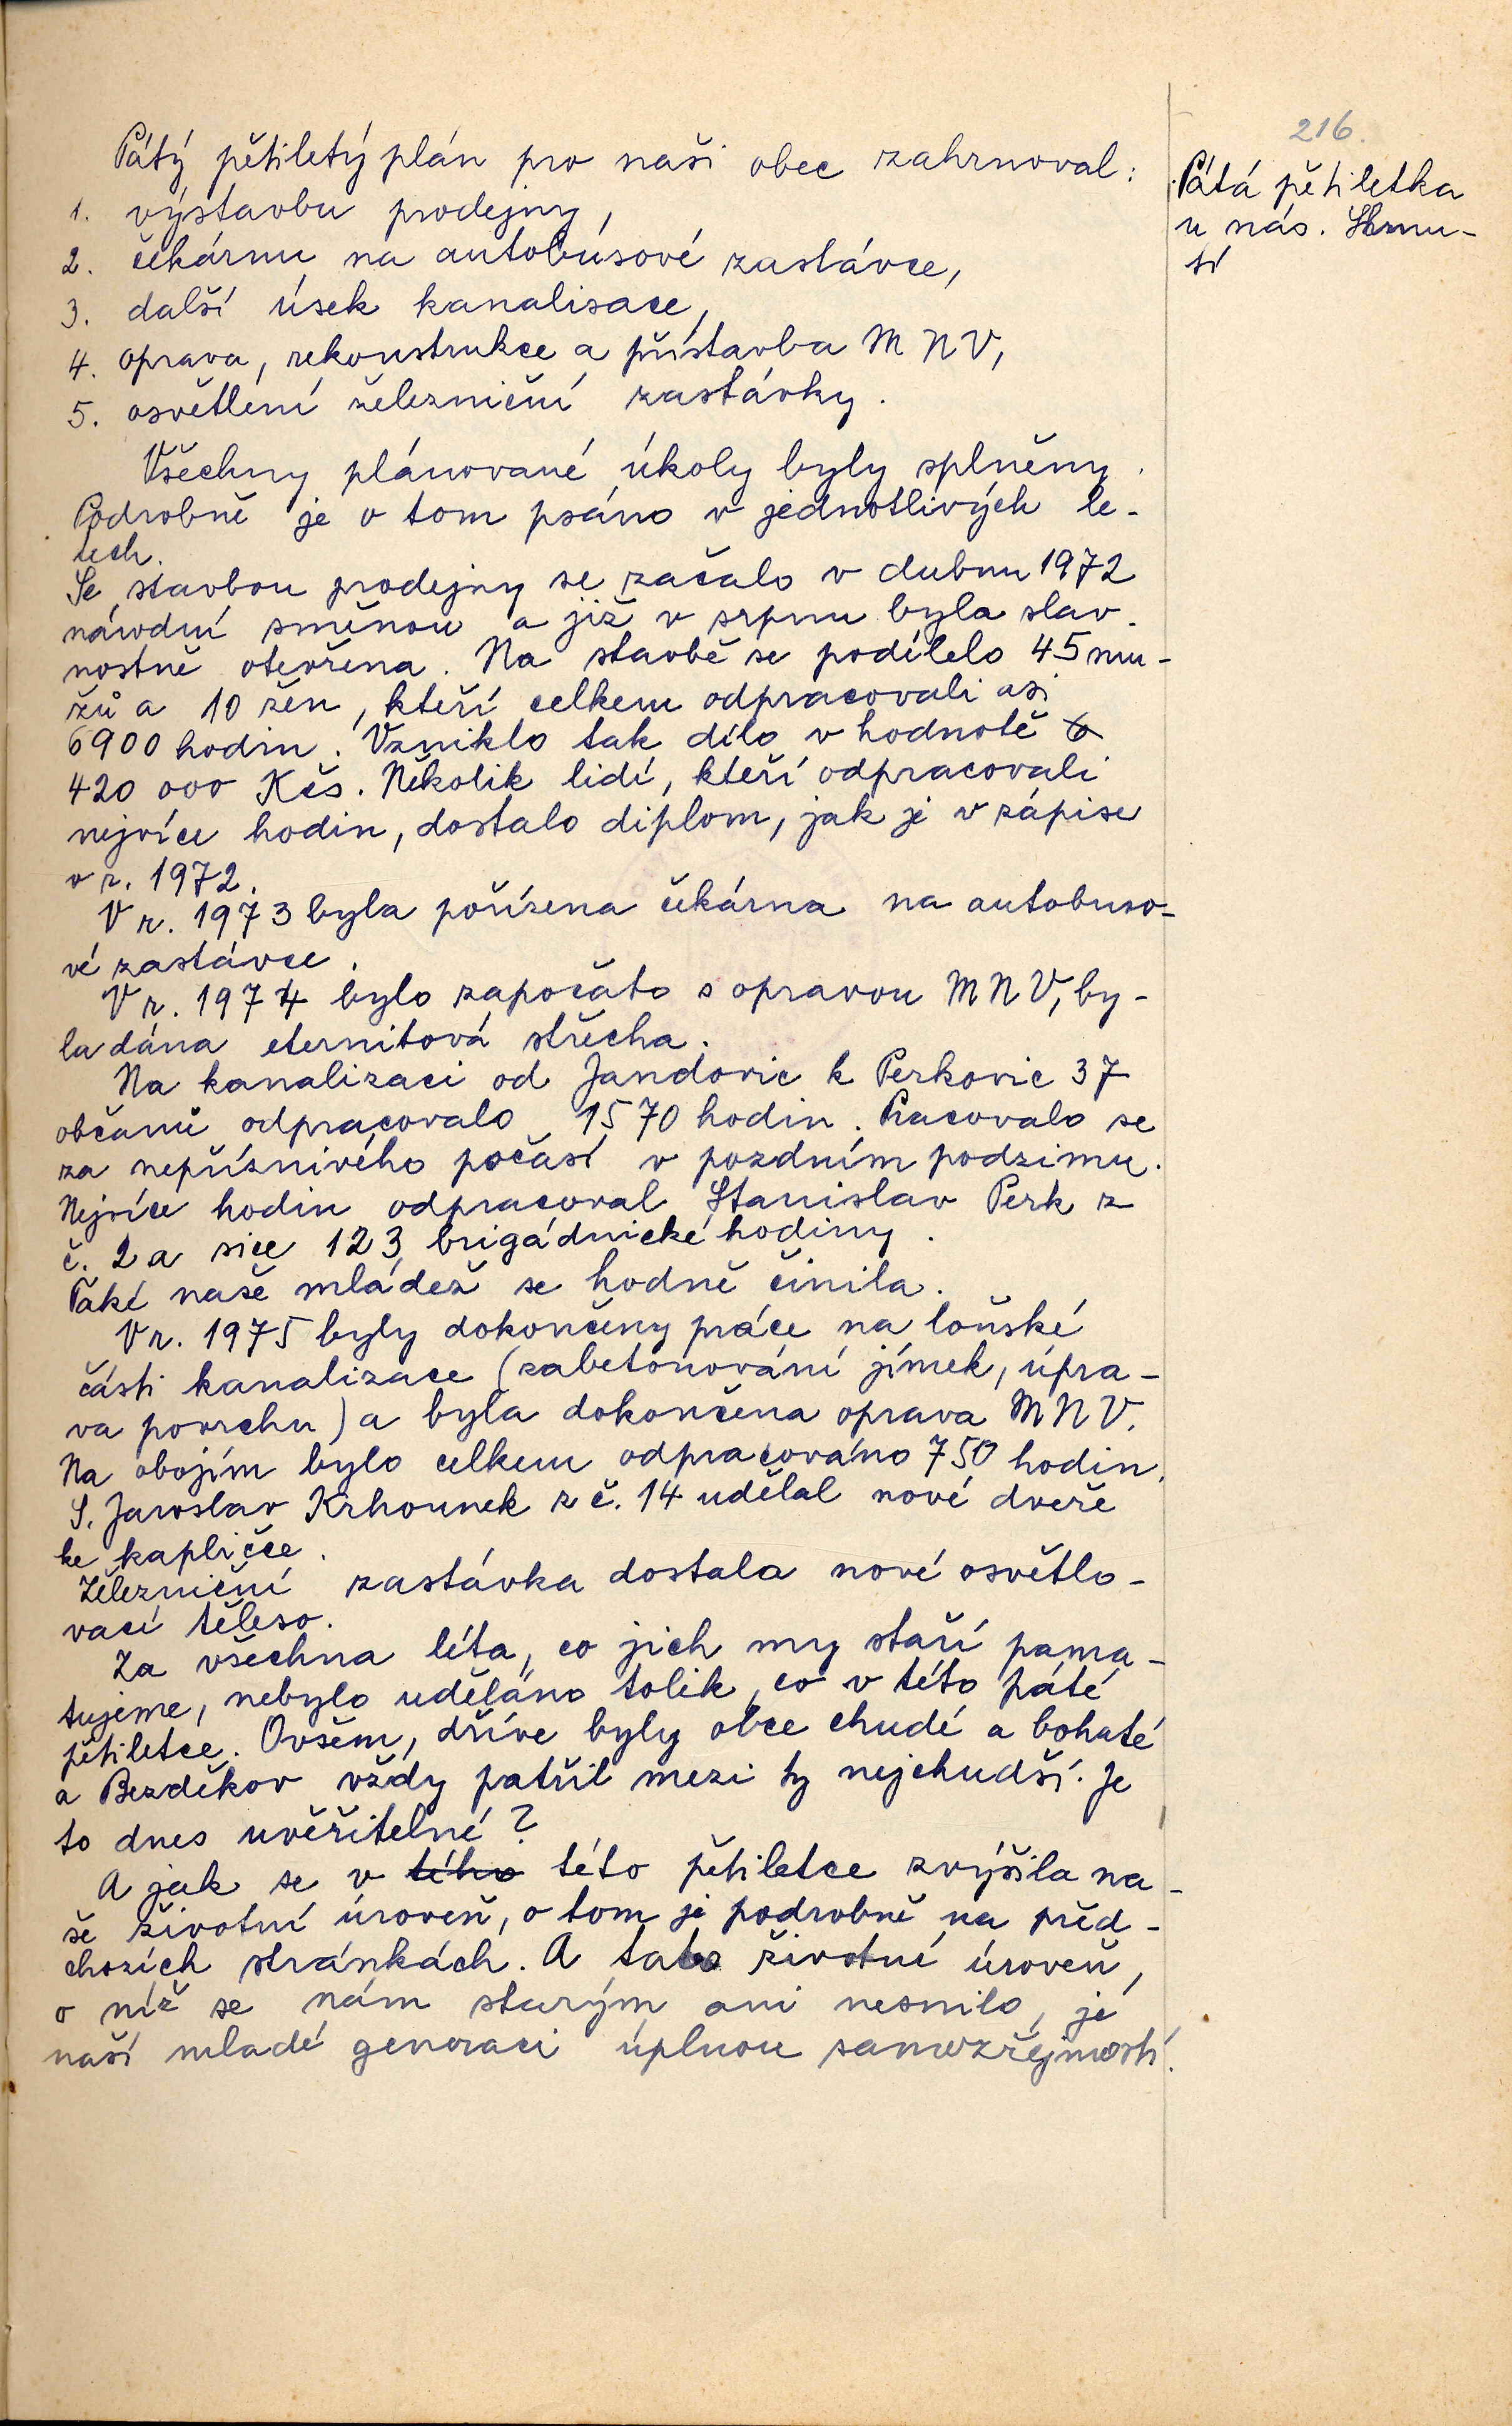 216.
Pátá pětiletka
u nás. Shrnu-
tí
Pátý pětiletý plán pro naši obec zahrnoval:
1. výstavbu prodejny,
2. čekárnu na autobusové zastávce,
3. další úsek kanalisace,
4. oprava, rekonstrukce a přístavba MNV,
5. osvětlení železniční zastávky.
Všechny plánované úkoly byly splněny.
Podrobně je o tom psáno v jednotlivých le-
tech.
Se stavbou prodejny se začalo v dubnu 1972
národní směnou a již v srpnu byla slav-
nostně otevřena. Na stavbě se podílelo 45 mu-
žů a 10 žen, kteří celkem odpracovali asi
6900 hodin. Vzniklo tak dílo v hodnotě
420 000 Kčs. Několik lidí, kteří odpracovali
nejvíce hodin, dostalo diplom, jak je v zápise
v r. 1972.
V r. 1973 byla pořízena čekárna na autobuso-
vé zastávce.
V r. 1974 bylo započato s opravou MNV, by-
la dána eternitová střecha.
Na kanalizaci od Jandovic k Perkovic 37
občanů odpracovalo 1570 hodin. Pracovalo se
za nepříznivého počasí v pozdním podzimu.
Nejvíce hodin odpracoval Stanislav Perk z
č. 2 a sice 123 brigádnické hodiny.
Také naše mládež se hodně činila.
V r. 1975 byly dokončeny práce na loňské
části kanalizace (zabetonování jímek, úpra-
va povrchu) a byla dokončena oprava MNV.
Na obojím bylo celkem odpracováno 750 hodin.
S. Jaroslav Krhounek z č. 14 udělal nové dveře
ke kapličce.
Železniční zastávka dostala nové osvětlo-
vací těleso.
Za všechna léta, co jich my staří pama-
tujeme, nebylo uděláno tolik, co v této páté
pětiletce. Ovšem, dříve byly obce chudé a bohaté
a Bezděkov vždy patřil mezi ty nejchudší. Je
to dnes uvěřitelné?
A jak se v této pětiletce zvýšila na-
še životní úroveň, o tom je podrobně na před-
chozích stránkách. A tato životní úroveň,
o níž se nám starým ani nesnilo, je
naší mladé generaci úplnou samozřejmostí.